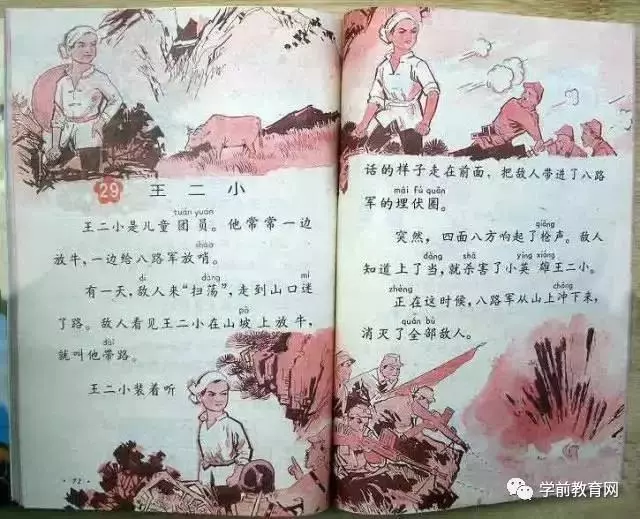 29 王二小
tuán yuán
王二小是儿童团员。他常常一边
shào
放牛，一边给八路军放哨。
dí dàng mí
有一天，敌人来“扫荡”，走到山口迷
pō
了路。敌人看见王二小在山坡上放牛，
dài
就叫他带路。
王二小装着听
·72·
话的样子走在前面，把敌人带进了八路
mái fú quān
军的埋伏圈。
qiāng
突然，四面八方响起了枪声。敌人
dàng shā yīng xióng
知道上了当，就杀害了小英雄王二小。
zhèng chōng
正在这时候，八路军从山上冲下来，
quán bù
消灭了全部敌人。
学前教育网